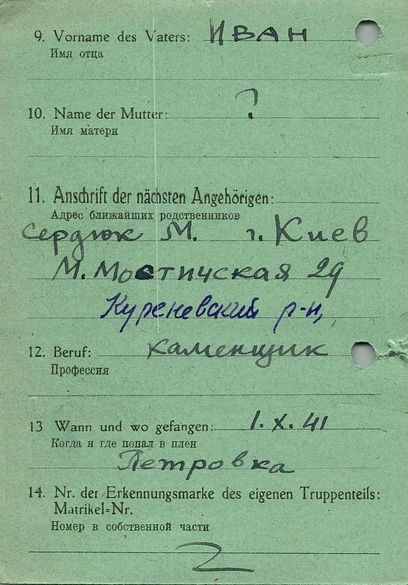 9. Vorname des Vaters: ИВАН
Имя отца
10. Name der Mutter: ?
Имя матери
11. Anschrift der nächsten Angehörigen:
Адрес ближайших родственников
Сердюк М. г. Киев
М. Мостичская 29
Куреневский р-н,
12. Beruf: каменщик
Профессия
13 Wann und wo gefangen: 1.X.41
Когда и где попал в плен
Петровка
14. Nr. der Erkennungsmarke des eigenen Truppenteils:
Matrikel=Nr.
Номер в собственной части